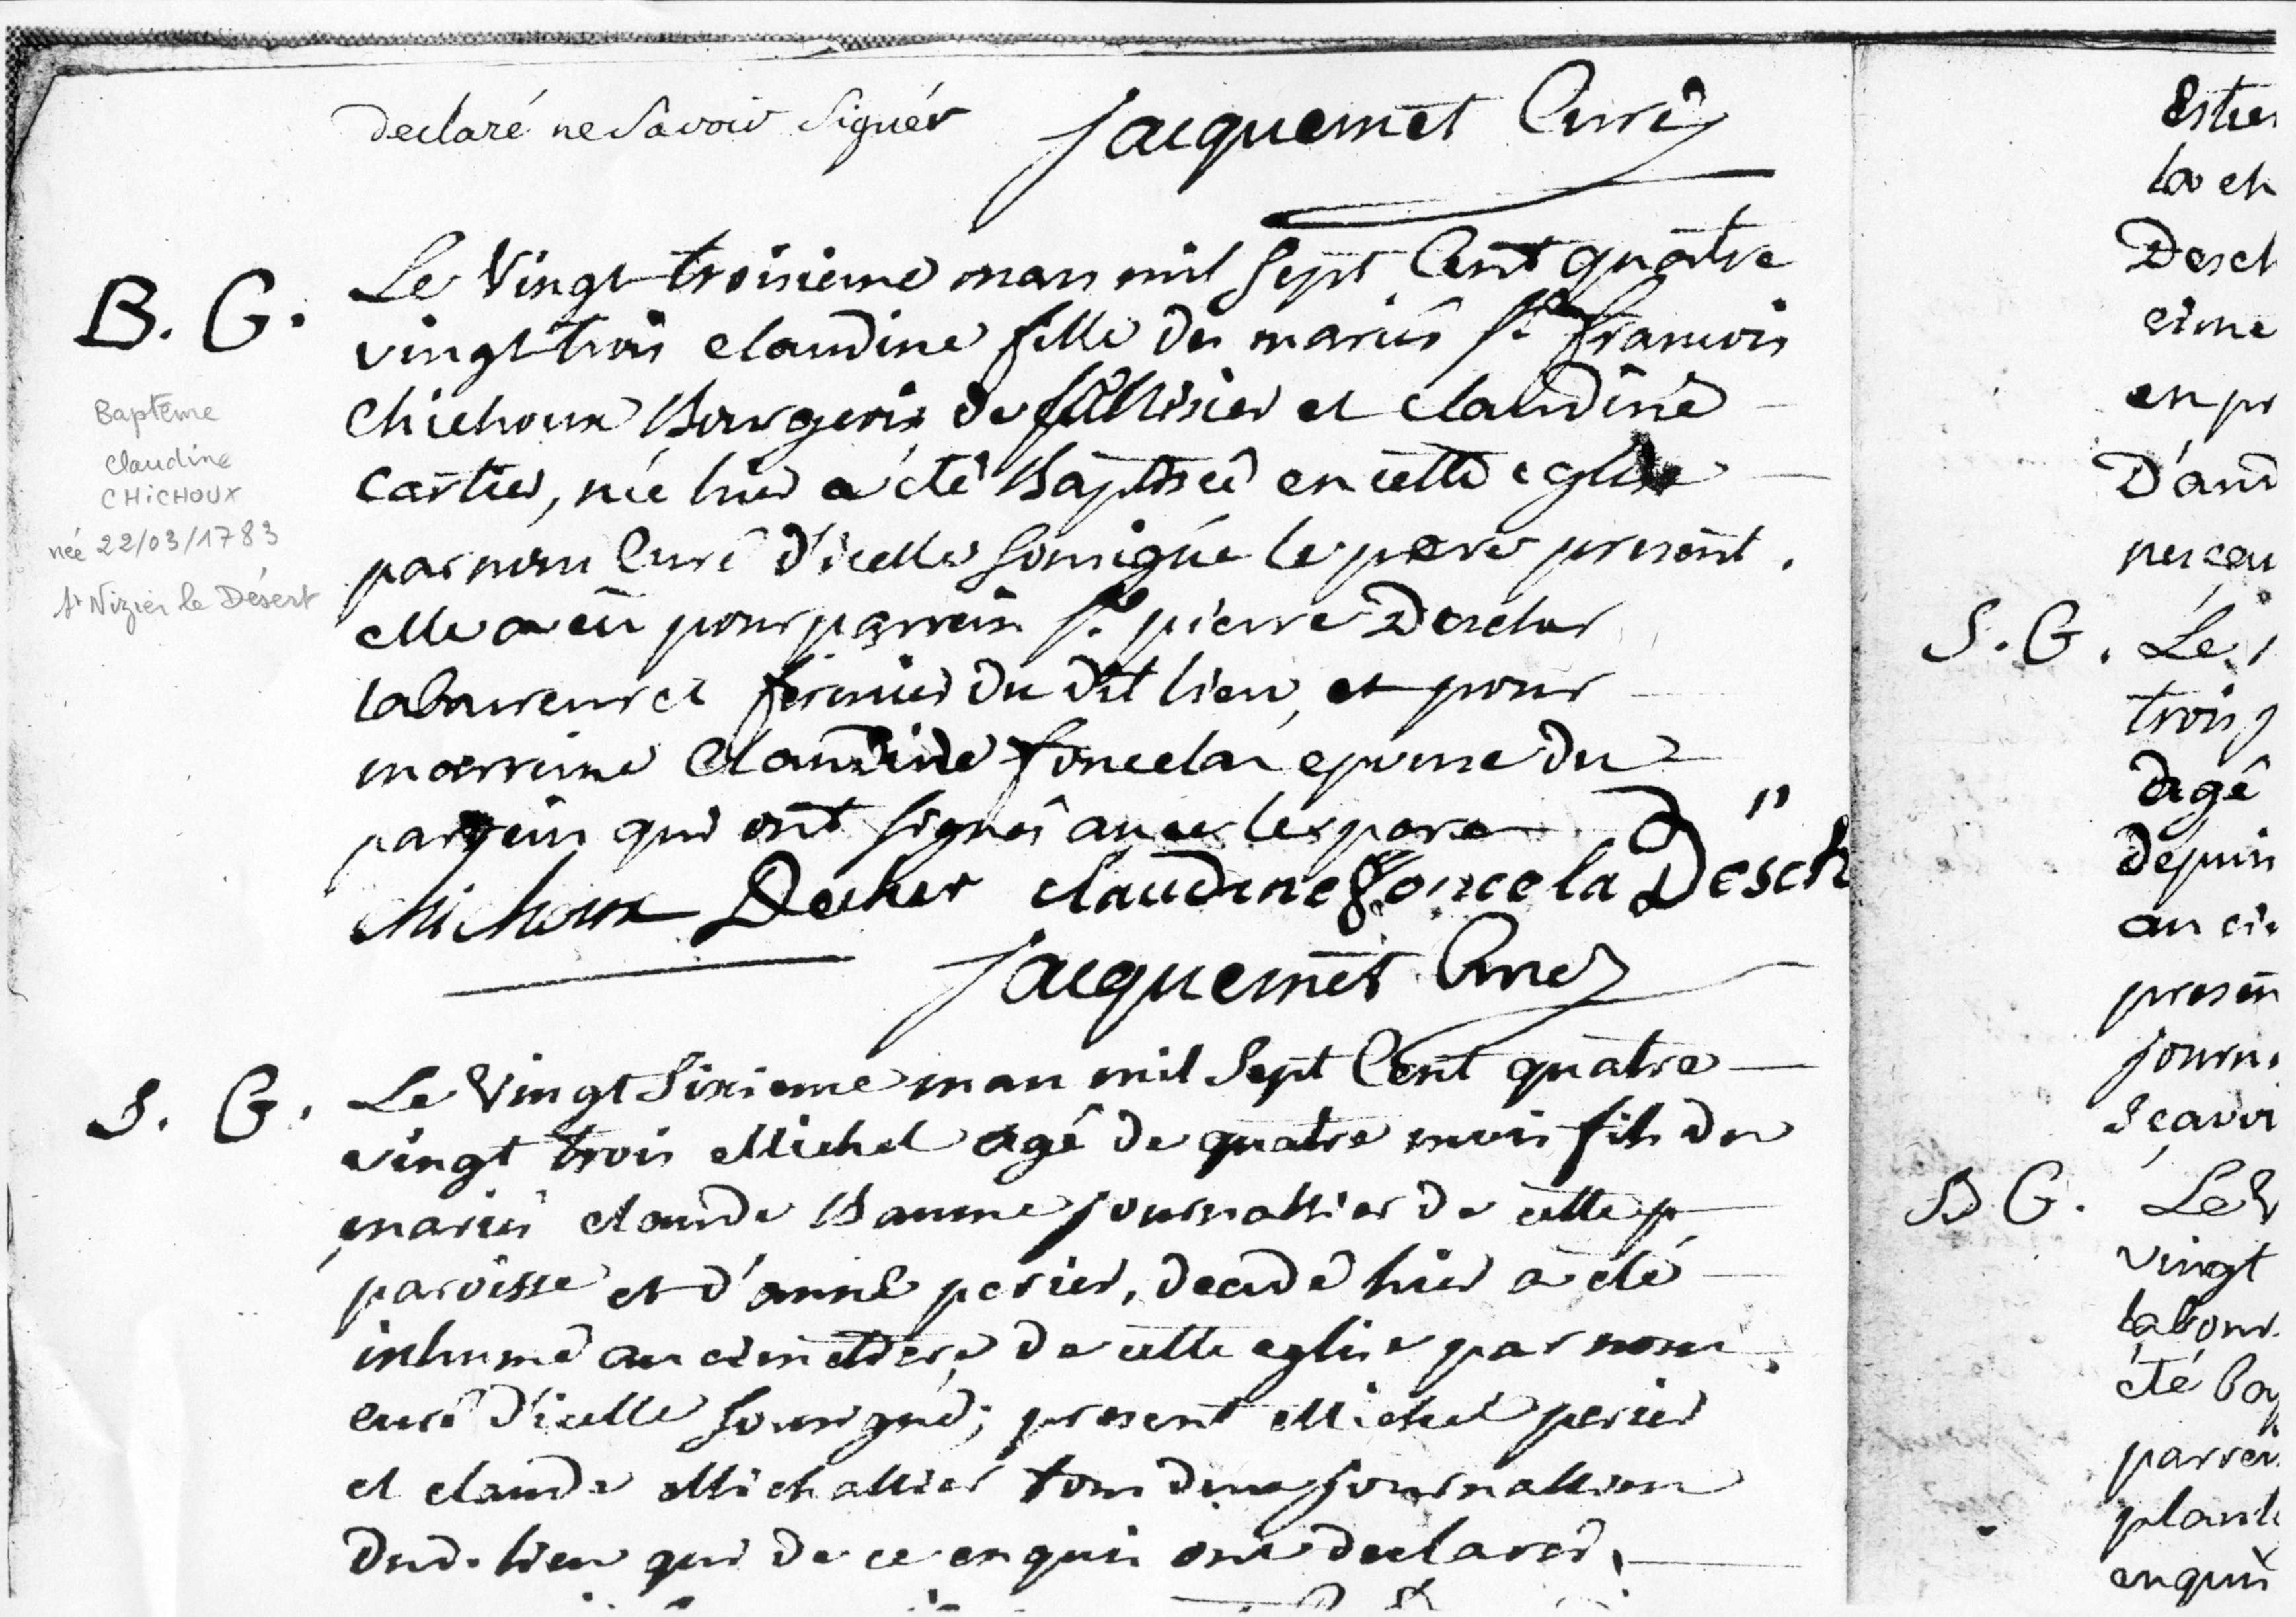 declaré ne Savoir Signér Jacquemet Curé
B. G. Le Vingt troisieme mars mil Sept Cent quatre
vingt trois claudine fille des mariés Sr. francois
Chichoux Bourgeois de et claudine
Cartier, née hier a été Baptisée en cette eglise
par nous Curé d'icelle Soussigné le pere present.
elle a eu pour parrein Sr. pierre Desclus
laboureur et fermier du dit lieu, et pour
marreine Claudine foncela epouse du
parrein qui ont signés avec le pere
chichoux claudine Foncela Desch
Jacquemet Curé
Baptême
Claudine
CHICHOUX
née 22/03/1783
St Nizier le Désert
S. G. Le Vingt Sixieme mars mil Sept Cent quatre
vingt trois Michel agé de quatre mois fils des
mariés claude Baume journallier de cette p
paroisse et d'anne perier, decedé hier a été
inhumé au cimetiere de cette eglise par nous
curé d'icelle Soussigné; present Michel perier
et claude Michallier tous deux journalliers
dud. lieu qui de ce enquis ont declarés,
Estie
la ch
Desch
cime
en pr
D'and
S. G. Le
trois
agé
depuis
an ci
presen
journ
Sçavoi
B G. Le V
vingt
labour
été Bap
parrei
plant
enquis